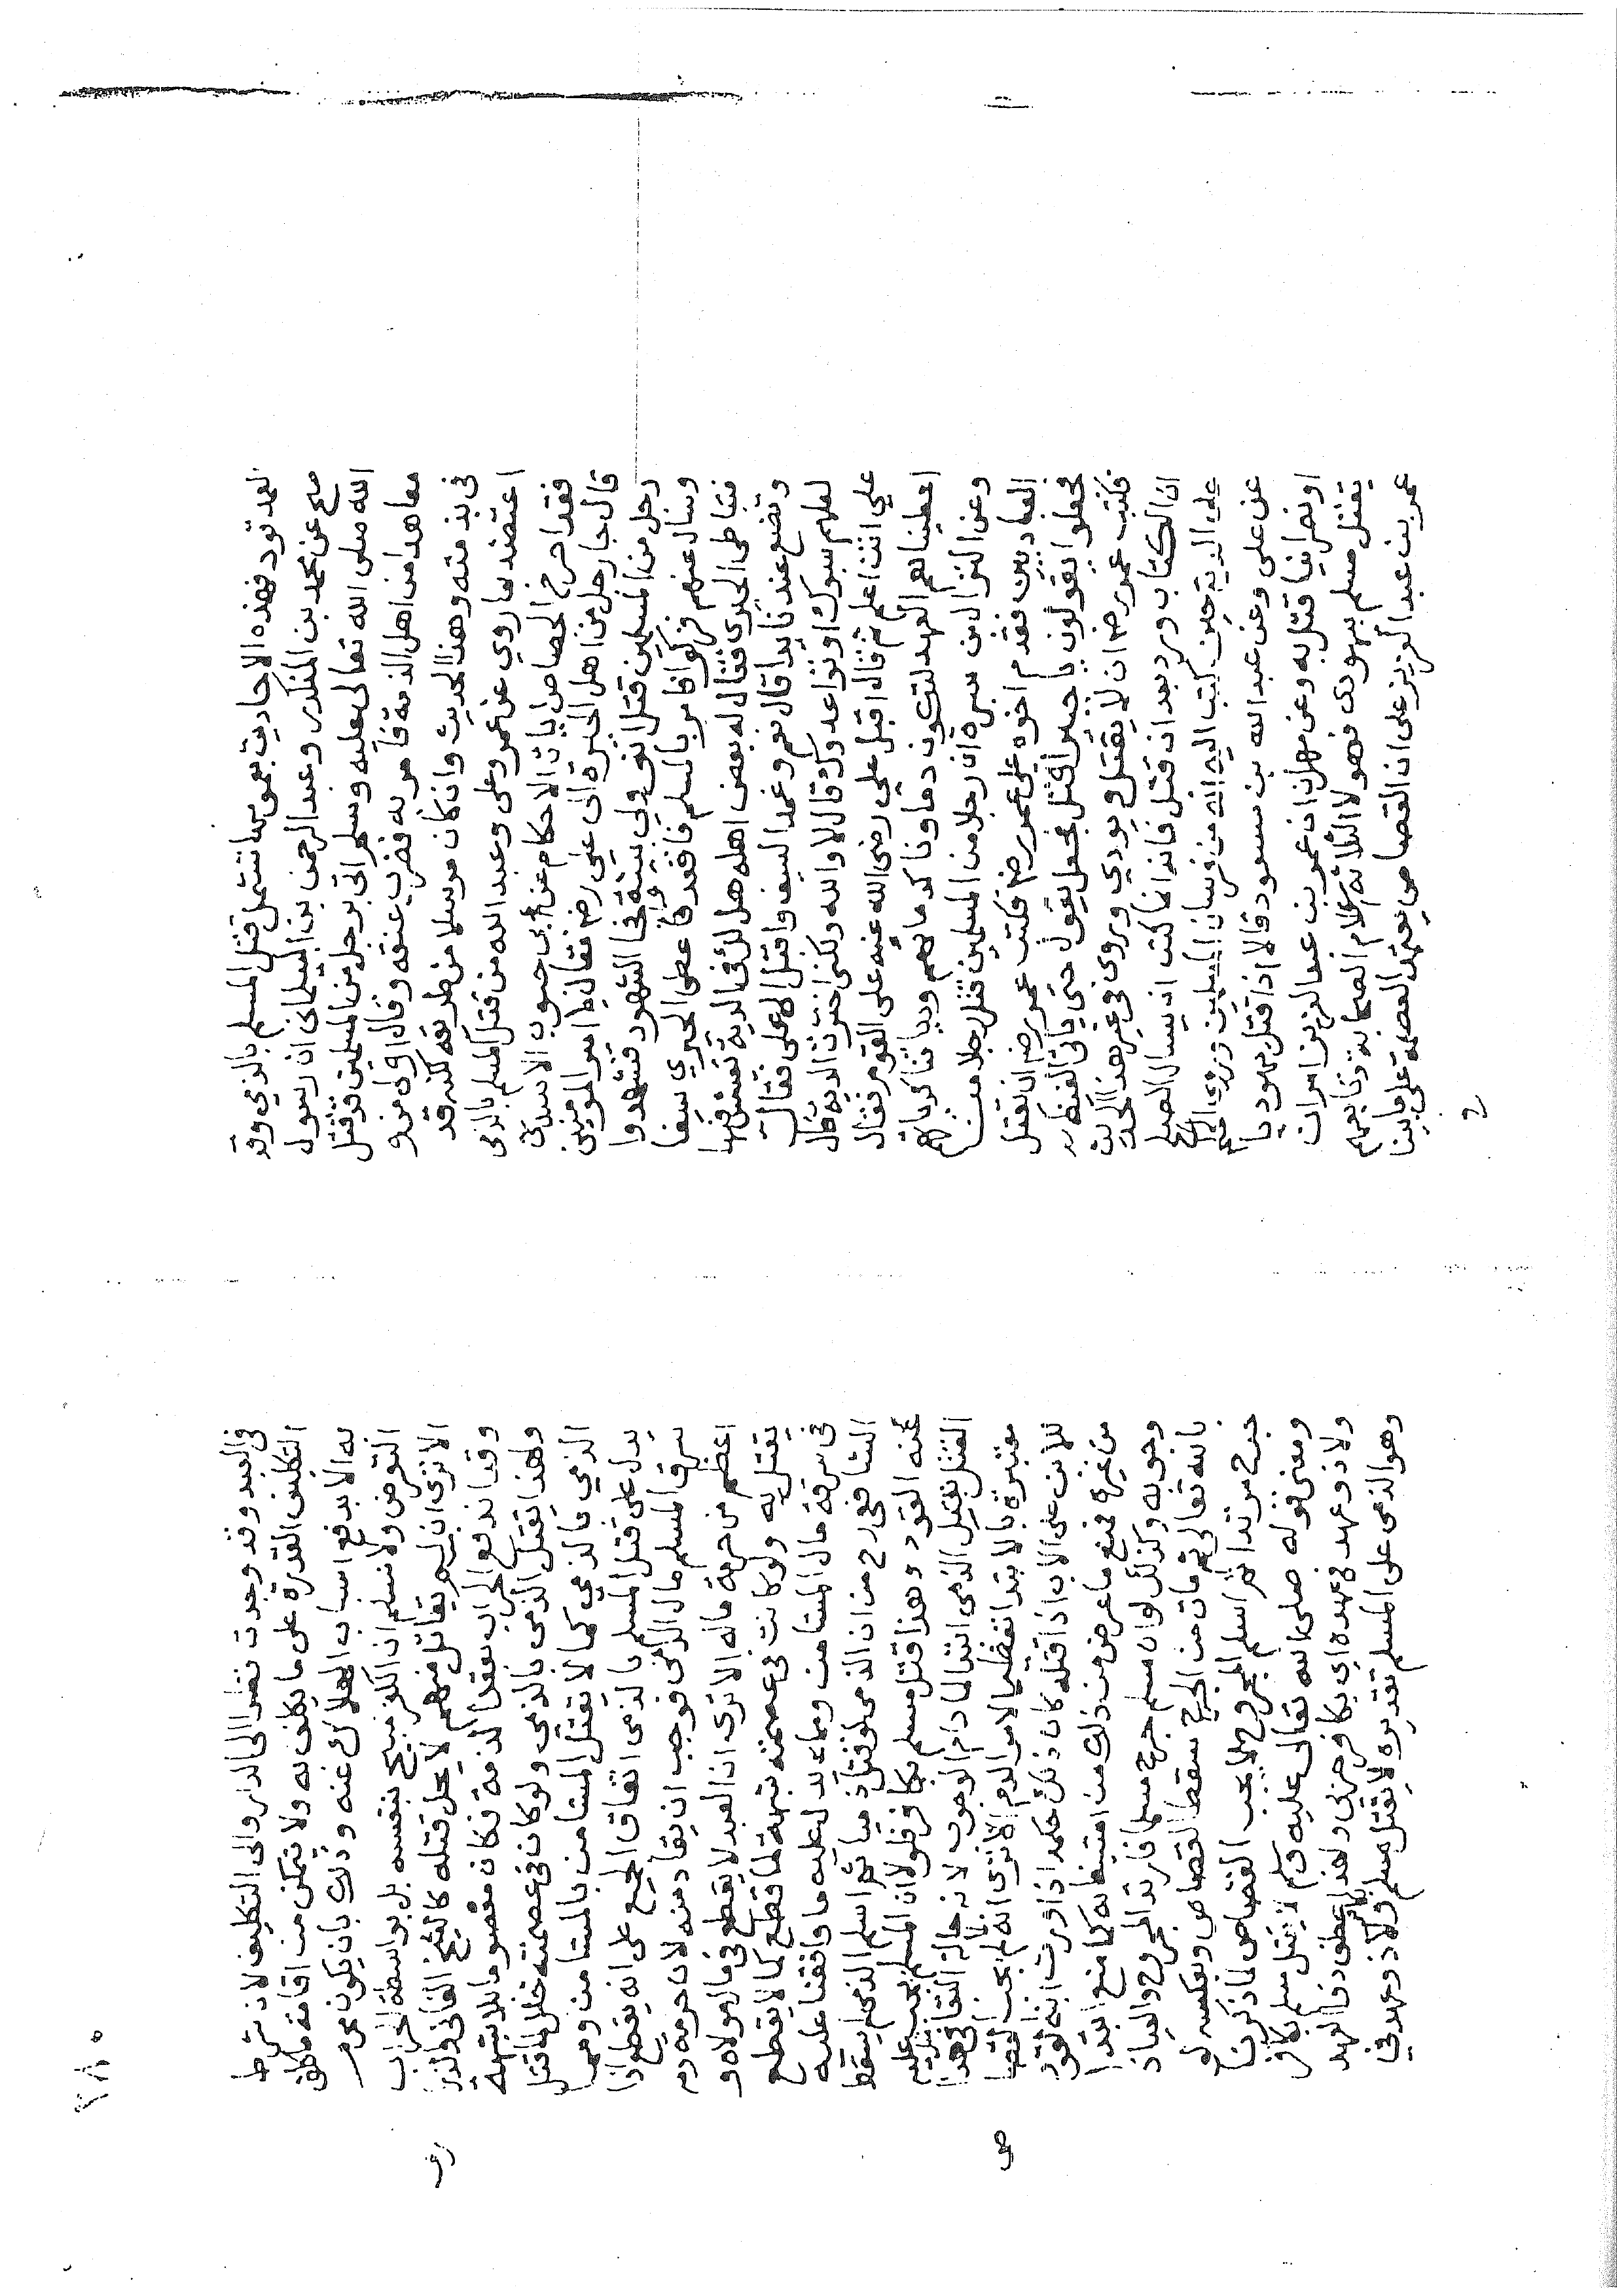 العمد قود فهذه الاحاديث بعمومها تشتمل قتل المسلم بالذمي وقد
صح عن محمد بن المنكدر وعبد الرحمن بن البيلماني ان رسول
الله صلى الله تعالى عليه وسلم اتى برجل من المسلمين قد قتل
معاهدا من اهل الذمة فامر به فضرب عنقه وقال اولى من و
فى بذمته وهذا الحديث وان كان مرسلا من طريقه لكنه قد
اعتضد بما روي عن عمر وعلى وعبد الله من قتل المسلم بالذمى
فقد اخرج الجصاص بات الاحكام عن ابى حبوب الاسدى
قال جا رجل من اهل الحيرة الى علي رضه فقال يا امير المومنين
رجل من المسلمين قتل ابنى ولى بينة فجا الشهود فشهدوا
وسال عنهم فزكوا فامر بالمسلم فاقعد واعطى الحيري سيفا
فتباطى الحيرى فقال له بعض اهله هل لك فى الدية تعيش فيها
وتصنع عندنا يدا قال نعم وغمد السيف واقبل الى على فقال
لعلهم سبوك او تواعدوك قال لا والله ولكنى اخترت الدية فقال
علي انت اعلم ثم قال اقبل علي رضى الله عنه على القوم فقال
اعطيناهم العهد لتكون دماونا كدمائهم ودياتنا كدياتهم
وعن النزال بن سبرة ان رجلا من المسلمين قتل رجلا من
العباديين فقدم اخوه على عمر رضه فكتب عمر رضه ان يقتل
فجعلوا يقولون يا جبير اقتل فجعل يقول حتى ياتى الغيظ
فكتب عمر رضه ان لا يقتل ويودي وروي فى غير هذا الحديث
ان الكتاب ورد بعد ان قتل فانه انما كتب ان يسال الصلح
على الدية حين كتب اليه انه من فرسان المسلمين وروي
عن على وعن عبد الله بن مسعود قالا اذا قتل يهوديا
او نصرانيا قتل به وعن مهران ان عمر بن عبد العزيز امر ان
يقتل مسلم بيهودى فهولا الثلاثة اعلام الصحابة وتابعهم
عمر بن عبد العزيز على ان القصاص يعتمد العصمة على ما بينا
فى العبد وقد وجدت نظرا الى الدار والى التكليف لان شرط
التكليف القدرة على ما يكلف به ولا يتمكن من اقامة ما كلف
به الا بدفع اسباب الهلاك عنه وذلك بان يكون محرم
التعرض ولا نسلم ان الكفر مبيح بنفسه بل بواسطة الحراب
الا ترى ان لم يقاتل منهم لا يحل قتله كالشيخ الفانى والذر
وقد اندفع الحراب بعقد الذمة فكان معصوما بلا شبهة
ولهذا يقتل الذمى بالذمى ولو كان فى عصمته خلل لما قتل
الذمي بالذمي كما لا يقتل المستامن بالمستامن ومما
يدل على قتل المسلم بالذمى اتفاق الجميع على انه يقطع اذا
سرق المسلم مال الذمى فوجب ان يقاد منه لان حرمة دم
اعظم من حرمة ماله الا ترى ان العبد لا يقطع فى مال مولاه و
يقتل به ولو كانت فى عصمته شبهة لما قطع كما لا يقطع
فى سرقة مال المستامن ومما يدل عليه ما وافقنا عليه
الشافعى رح من ان الذمى لو قتل ذميا ثم اسلم الذمى لم يسقط
عنه القود وهذا قتل مسلم بكافر فلولا ان المسلم يجب عليه
القتل بقتل الذمى ابتدا لما دام الوجوب لانه حالة البقا فى هذا
معتبرة بالابتدا تعظيما لامر الدم الا ترى انه لم يجب القصا
للابن على الاب اذا قتله كان ذلك حكمه اذا ورث ابنه القود
من غيره فمنع ما عرض من ذلك من استيفائه كما منع ابتدا
وجوبه وكذلك لو ان مسلم جرح مسلما فارتد المجروح والعياذ
بالله تعالى ثم مات من الجرح سقط القصاص وبعكسه لو
جرح مرتدا ثم اسلم المجروح لا يجب القصاص لما ذكرنا
ومعنى قوله صلى الله تعالى عليه وسلم لا يقتل مسلم بكافر
ولا ذو عهد فى عهده اي بكافر حربى ولهذا عطف ذى العهد
وهو الذمى على المسلم تقديره لا يقتل مسلم ولا ذو عهد فى
٢٨٥